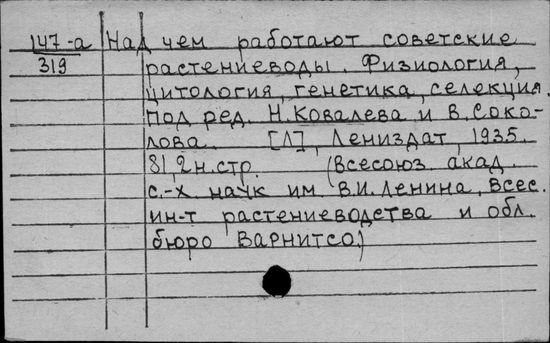 147-а Над чем работают советские
319 растениеводы. Физиология,
цитология, генетика, селекция.
Под ред. Н. Ковалева и В. Соко-
лова. [Л], Лениздат, 1935.
81, 2 н. стр. (Всесоюз. акад.
с.-х. наук им. В.И. Ленина, Всес.
ин-т растениеводства и обл.
бюро ВАРНИТСО.)